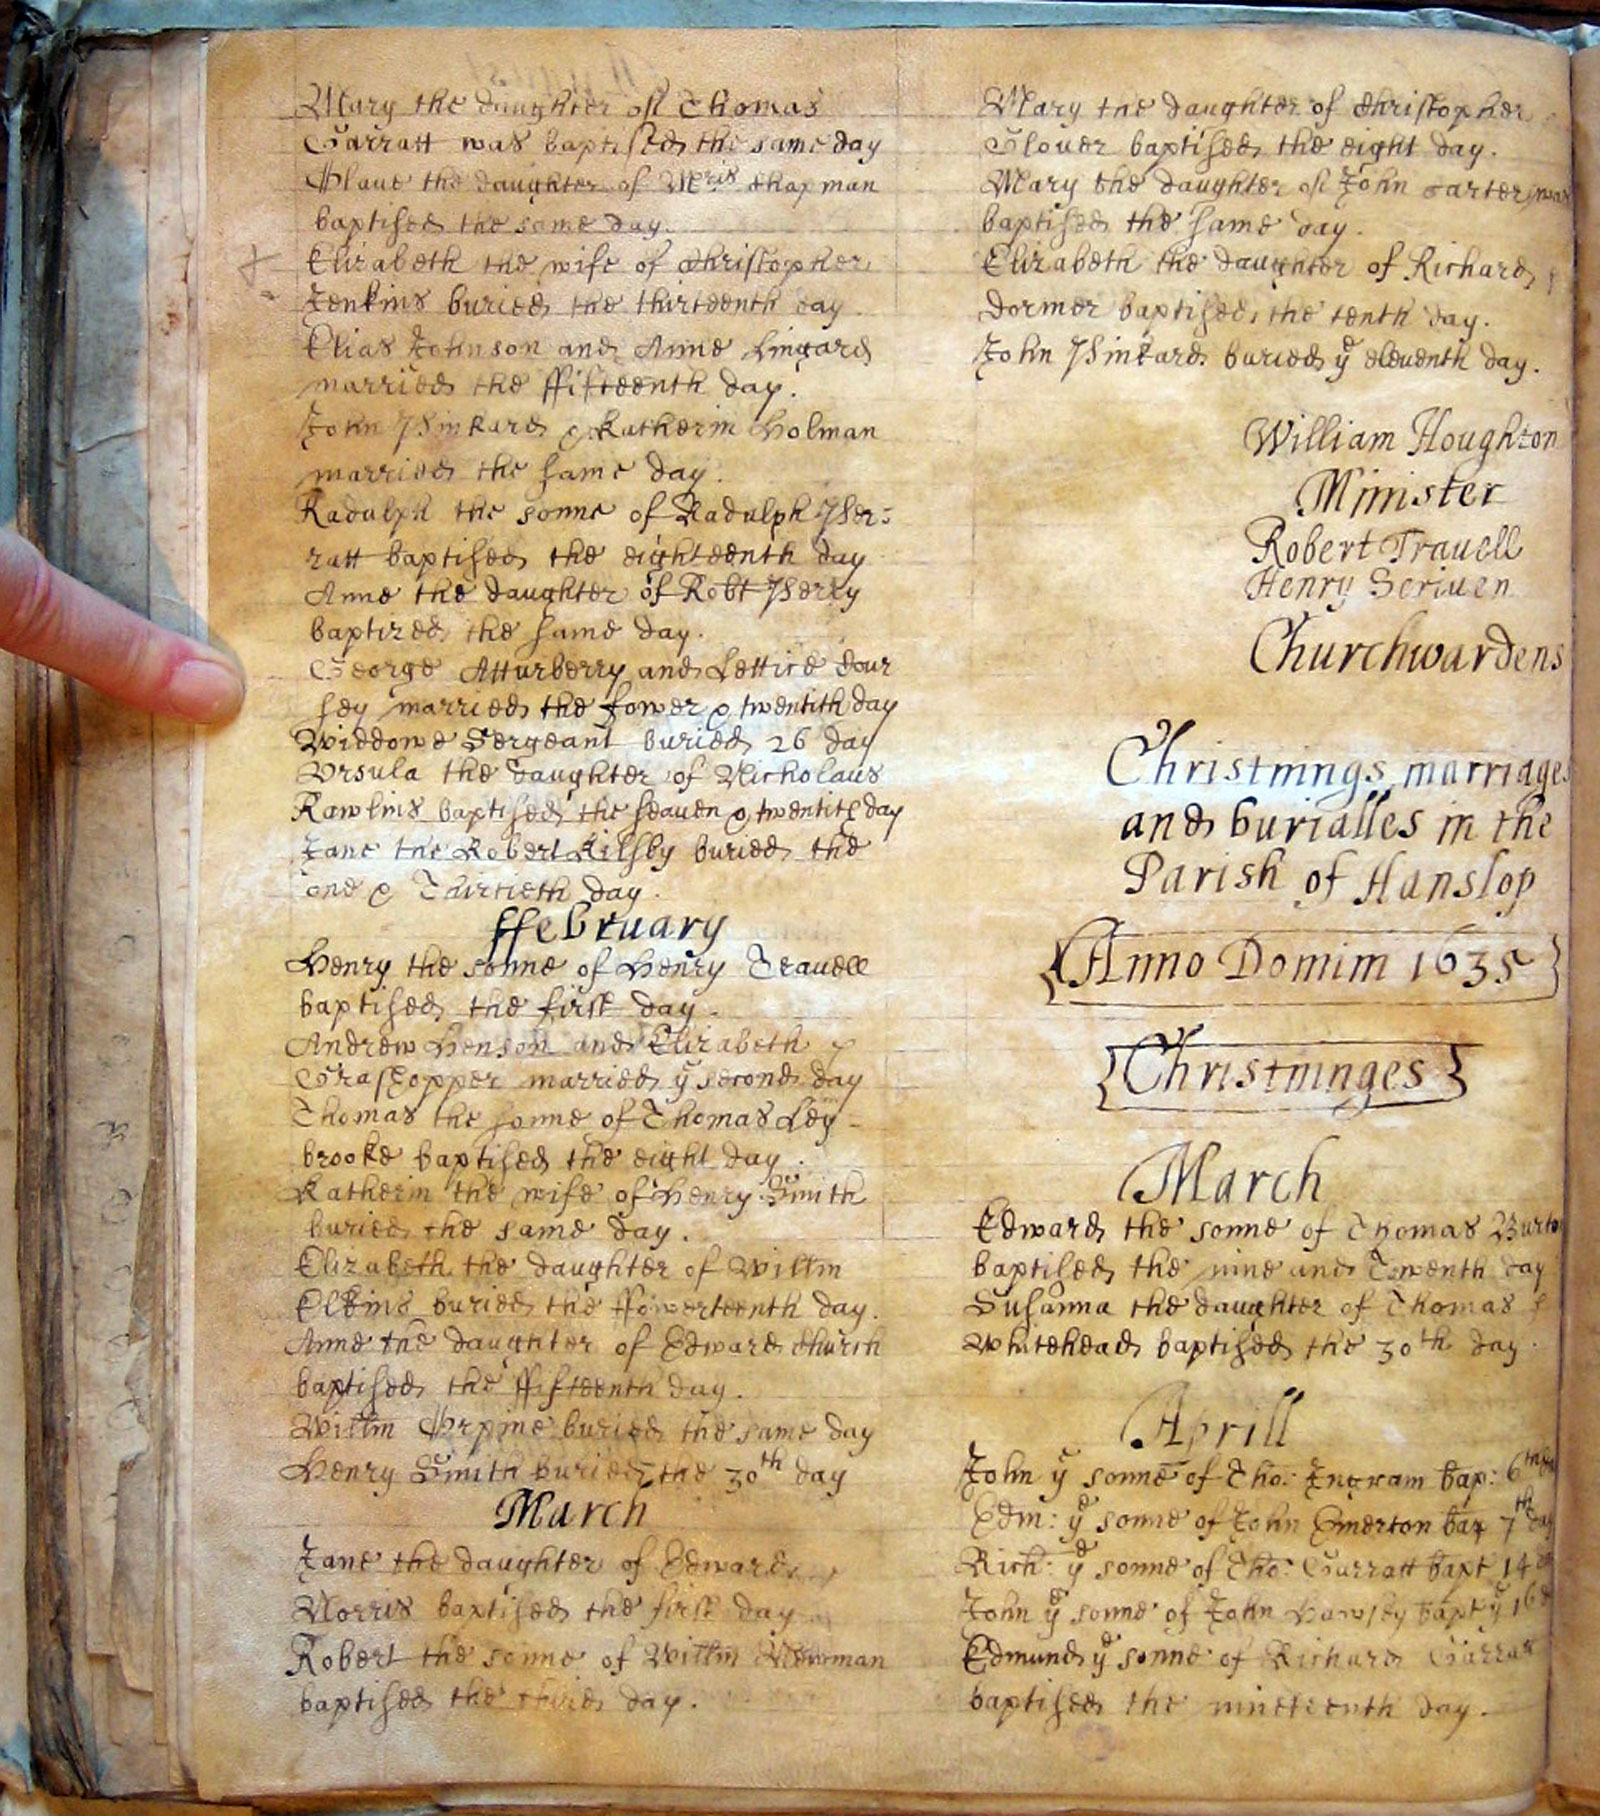 Mary the daughter of Thomas
Garratt was baptised the same day
the daughter of Mris Chapman
baptised the same day.
Elizabeth the wife of Christopher
Jenkins buried the thirteenth day.
Elias Johnson and Anne Lingard
married the ffifteenth day.
John & Katherin Holman
married the same day.
Radulph the sonne of Radulph Per:
ratt baptised the eighteenth day
Anne the daughter of Robt Perry
baptized the same day.
George Atturberry and Lettice Cour
sey married the fower & twentith day
Widdowe Sergeant buried 26 day
Vrsula the daughter of Nicholaus
Rawlins baptised the seauen & twentith day
Jane the Robert Kilsby buried the
one & Thirtieth day.
ffebruary
Henry the sonne of Henry Trauell
baptised the first day.
Andrew Henson and Elizabeth
Grashopper married ye second day
Thomas the sonne of Thomas Ley
brooke baptised the eight day.
Katherin the wife of Henry Smith
buried the same day.
Elizabeth the daughter of Willm
Elkins buried the ffowerteenth day.
Anne the daughter of Edward Church
baptised the ffifteenth day.
Willm buried the same day
Henry Smith buried the 30th day
March
Jane the daughter of Edward
Morris baptised the first day
Robert the sonne of Willm Newman
baptised the third day.
Mary the daughter of Christopher
Glouer baptised the eight day.
Mary the daughter of John Carter was
baptised the same day.
Elizabeth the daughter of Richard
Dormer baptised the tenth day.
John buried ye eleuenth day.
William Houghton
Minister
Robert Trauell
Henry Scriuen
Churchwardens
Christnings marriages
and burialles in the
Parish of Hanslop
Anno Domini 1635
Christninges
March
Edward the sonne of Thomas Burto
baptised the nine and Twenth day
Susanna the daughter of Thomas
Whitehead baptised the 30th day.
Aprill
John ye sonne of Tho: Ingram bap: 6th
Edm: ye sonne of John Emerton bap 7th day
Rich: ye sonne of Tho: Garratt bapt 14
John ye sonne of John Hawley bapt ye 16
Edmund ye sonne of Richard Garrat
baptised the nineteenth day.